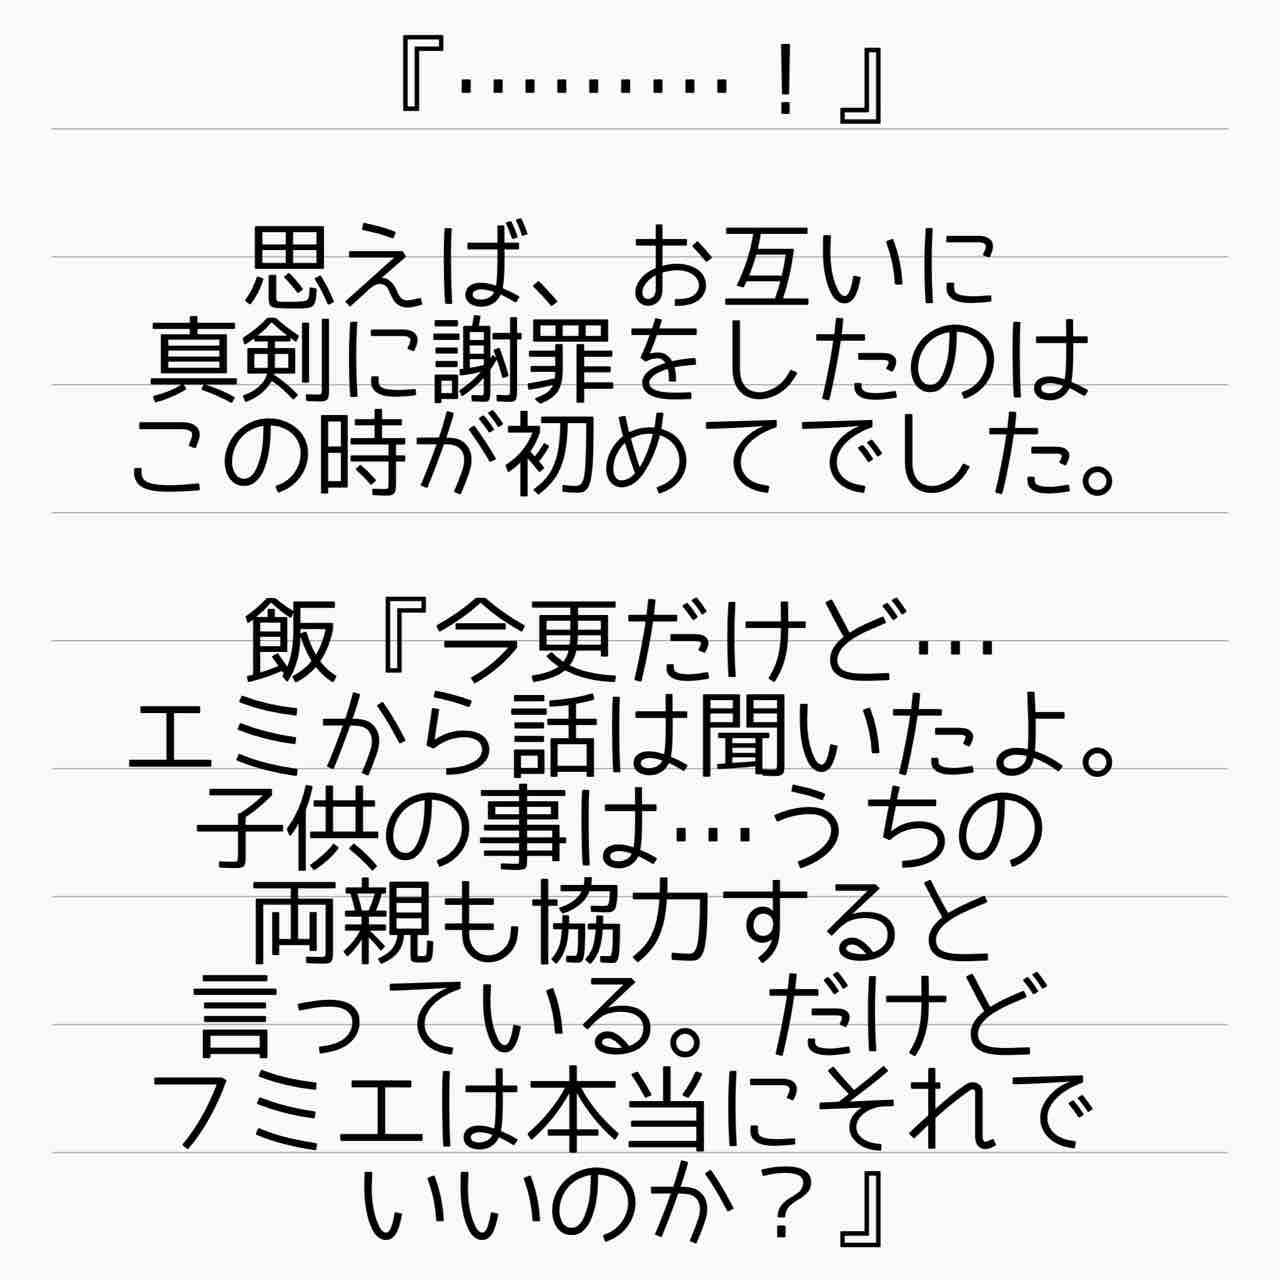 『………！』
思えば、お互いに
真剣に謝罪をしたのは
この時が初めてでした。
飯『今更だけど…
エミから話は聞いたよ。
子供の事は…うちの
両親も協力すると
言っている。だけど
フミエは本当にそれで
いいのか？』